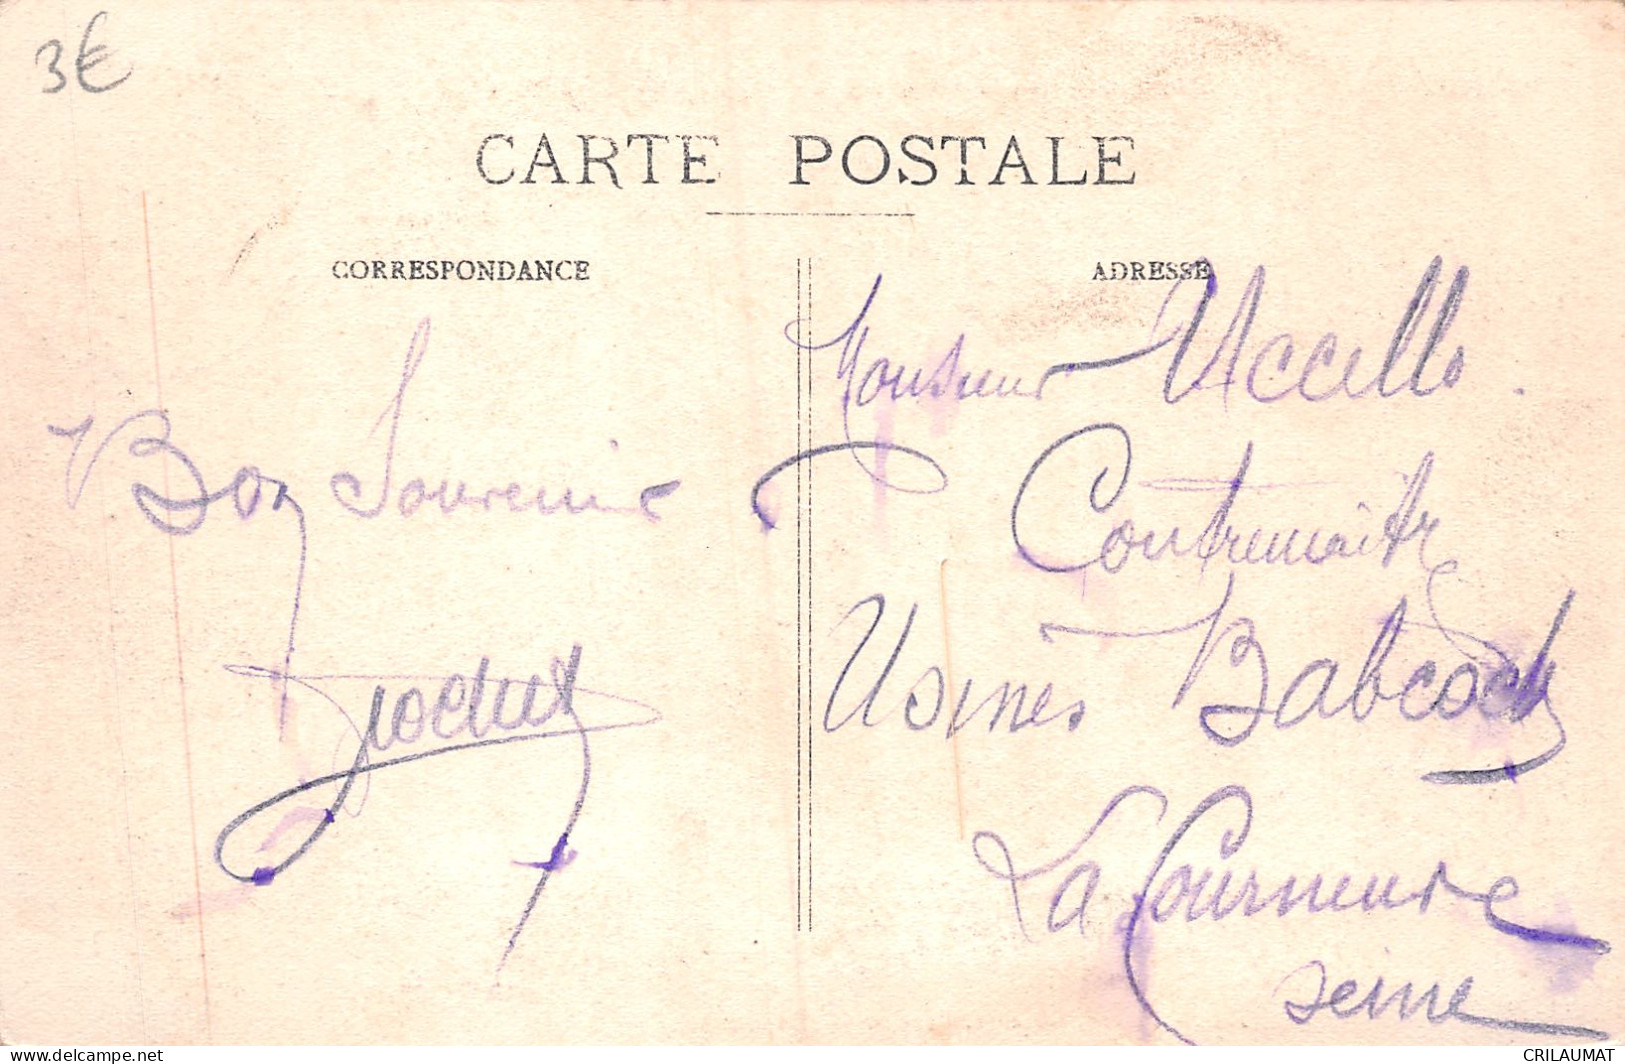 3€
CARTE POSTALE
CORRESPONDANCE
ADRESSE
Bon Souvenir
Monsieur Uccello
Contremaître
Usines Babcock
La Courneuve
Seine
CRILAUMAT